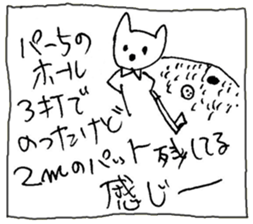 パー5の
ホール
3打で
のったけど
2mのパット残してる
感じー